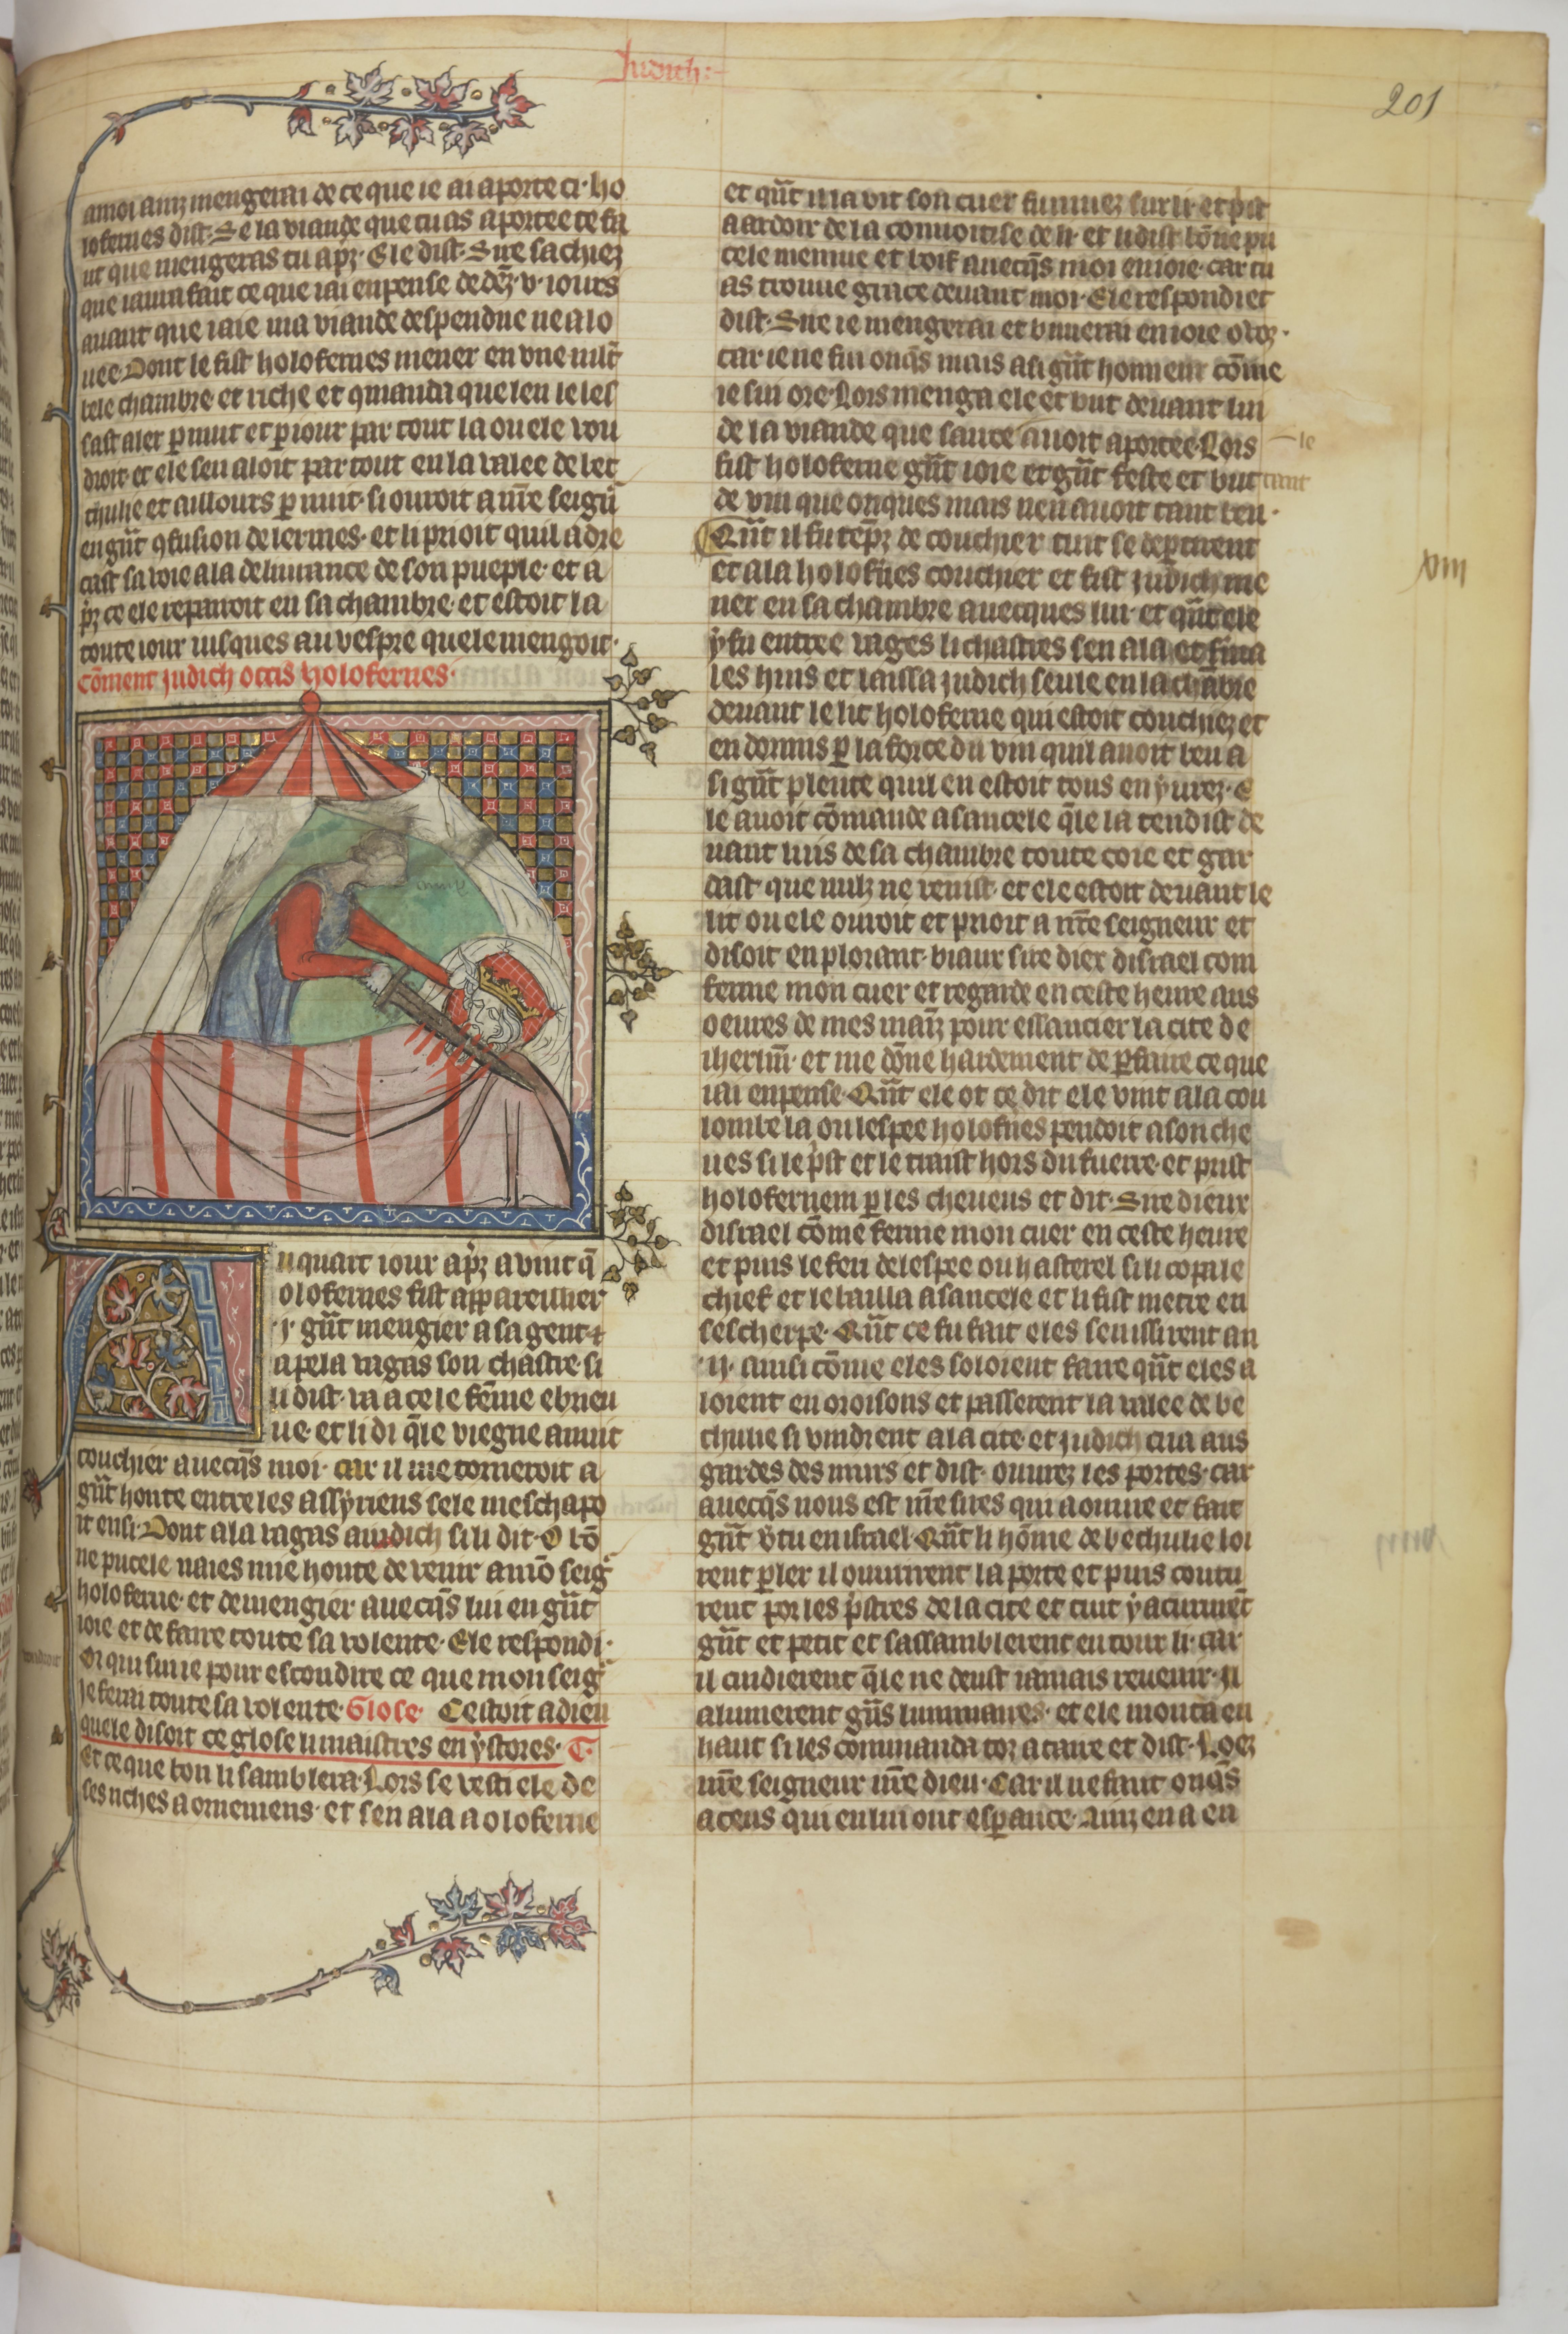 Judich:
201
amoi ainz mengerai de ce que ie ai aporte ci· ho
lofernes dist· Se la viande que tu as aportee te fa
ut que mengeras tu apz· Ele dist· Sire sachiez
que iaura fait ce que iai enpense dedēz· v· iours
auant que iaie ma viande despendue ne alo
uee· Dont le fist holofernes mener en vne mlt
bele chambre et riche et qmanda que len le les
sast aler p nuit et p iour par tout la ou ele vou
droit et ele sen aloit par tout en la valee de bet
thulie et aillours p nuit· si ouroit a nr̄e seign̄
en gūt qfusion de lermes· et li prioit quil adre
cast sa voie a la deliurance de son pueple· et a
pz ce ele repairoit en sa chambre· et estoit la
toute iour iusques au vespre quele mengoit·
cōment judich occis holofernes·
A
u quart iour apz auint q̄
olofernes fist apareillier
·i· gūt mengier a sa gent· ⁊
apela vagas son chastre si
li dist· va a cele fēme ebrieu
ue· et li di q̄le viegne anuit
couchier auecq̄s moi· car il me torneroit a
gūt honte entre les assyriens sele meschapo
it ensi· Dont ala vagas a iudich si li dit· O bō
ne pucele naies mie honte de venir a mō seiḡ
holoferne· et de mengier auecq̄s lui en gūt
ioie et de faire toute sa volente· Ele respondi·
Or qui sui ie pour escondire ce que mon seiḡ
voudroit
ie ferai toute sa volente· Glose· Cestoit a dieu
quele disoit ce glose li maistres en ystores· T·
Et ce que bon li samblera· Lors se vesti ele de
ses riches aornemens· et sen ala a oloferne
et qūt il la vit son cuer fu muez sur li· et pist
a ardoir de la conuoitise de li· et li dist bōne pu
cele meniue et boif auecq̄s moi en ioie· car tu
as trouue grace deuant moi· Ele respondi et
dist· Sire ie mengerai et buuerai en ioie orez·
car ie ne fui onq̄s mais a si gūt honneur cōme
ie sui ore· Lors menga ele et but deuant lui
de la viande que sancele auoit aportee· Lors
le
fist holoferne gūt ioie et gūt feste et but tant
de vin que onques mais nen auoit tant beu·
Qūt il fu tēpz de couchier tuit se deptirent
viii
et ala holofn̄es couchier et fist judich me
ner en sa chambre auecques lui· et qūt ele
y fu entree vages li chastres sen ala et ferma
les huis et laissa judich seule en la chābre
deuant le lit holoferne qui estoit couchiez et
endormis p la force du vin quil auoit beu a
si gūt plente quil en estoit tous enyurez· E
le auoit cōmande a sancele q̄le latendist de
uant luis de sa chambre toute coie et gar
dast que nulz ne venist· et ele estoit deuant le
lit ou ele ouroit et prioit a nr̄e seigneur et
disoit en plorant· biaux sire diex disrael con
ferme mon cuer et regarde en ceste heure aus
oeures de mes mainz pour essaucier la cite de
iherlm̄· et me dōne hardement de pfaire ce que
iai enpense· Qūt ele ot ce dit ele vint a la cou
lombe la ou lespee holofn̄es pendoit a son che
ues si le pist et le traist hors du fuerre· et prist
holofernem p les cheueus et dit· Sire dieux
disrael cōme ferme mon cuer en ceste heure
et puis le feri de lespee ou hasterel si li copa le
chief et le bailla a sancele et li fist metre en
sescherpe· Qūt ce fu fait eles senissirent an
·ii· ainsi cōme eles soloient faire qūt eles a
loient en oroisons et passerent la valee de be
thulie si vindrent a la cite· et judich cria aus
gardes des murs et dist· ouurez les portes· car
auecq̄s nous est nr̄e sires qui a ouure et fait
gūt v̄tu en israel· Qūt li hōme de bethulie loi
rent pler il ouurirent la porte et puis couru
rent por les p̄stres de la cite et tuit y acururēt
gūt et petit et sassamblerent entour li· car
il cuidierent q̄le ne deust iamais reuenir· Il
alumerent gūs luminaires· et ele monta en
haut si les commanda toz a taire et dist· Loez
nr̄e seigneur nr̄e dieu· Car il ne faut onq̄s
a ceus qui en lui ont espance· Ainz en a en